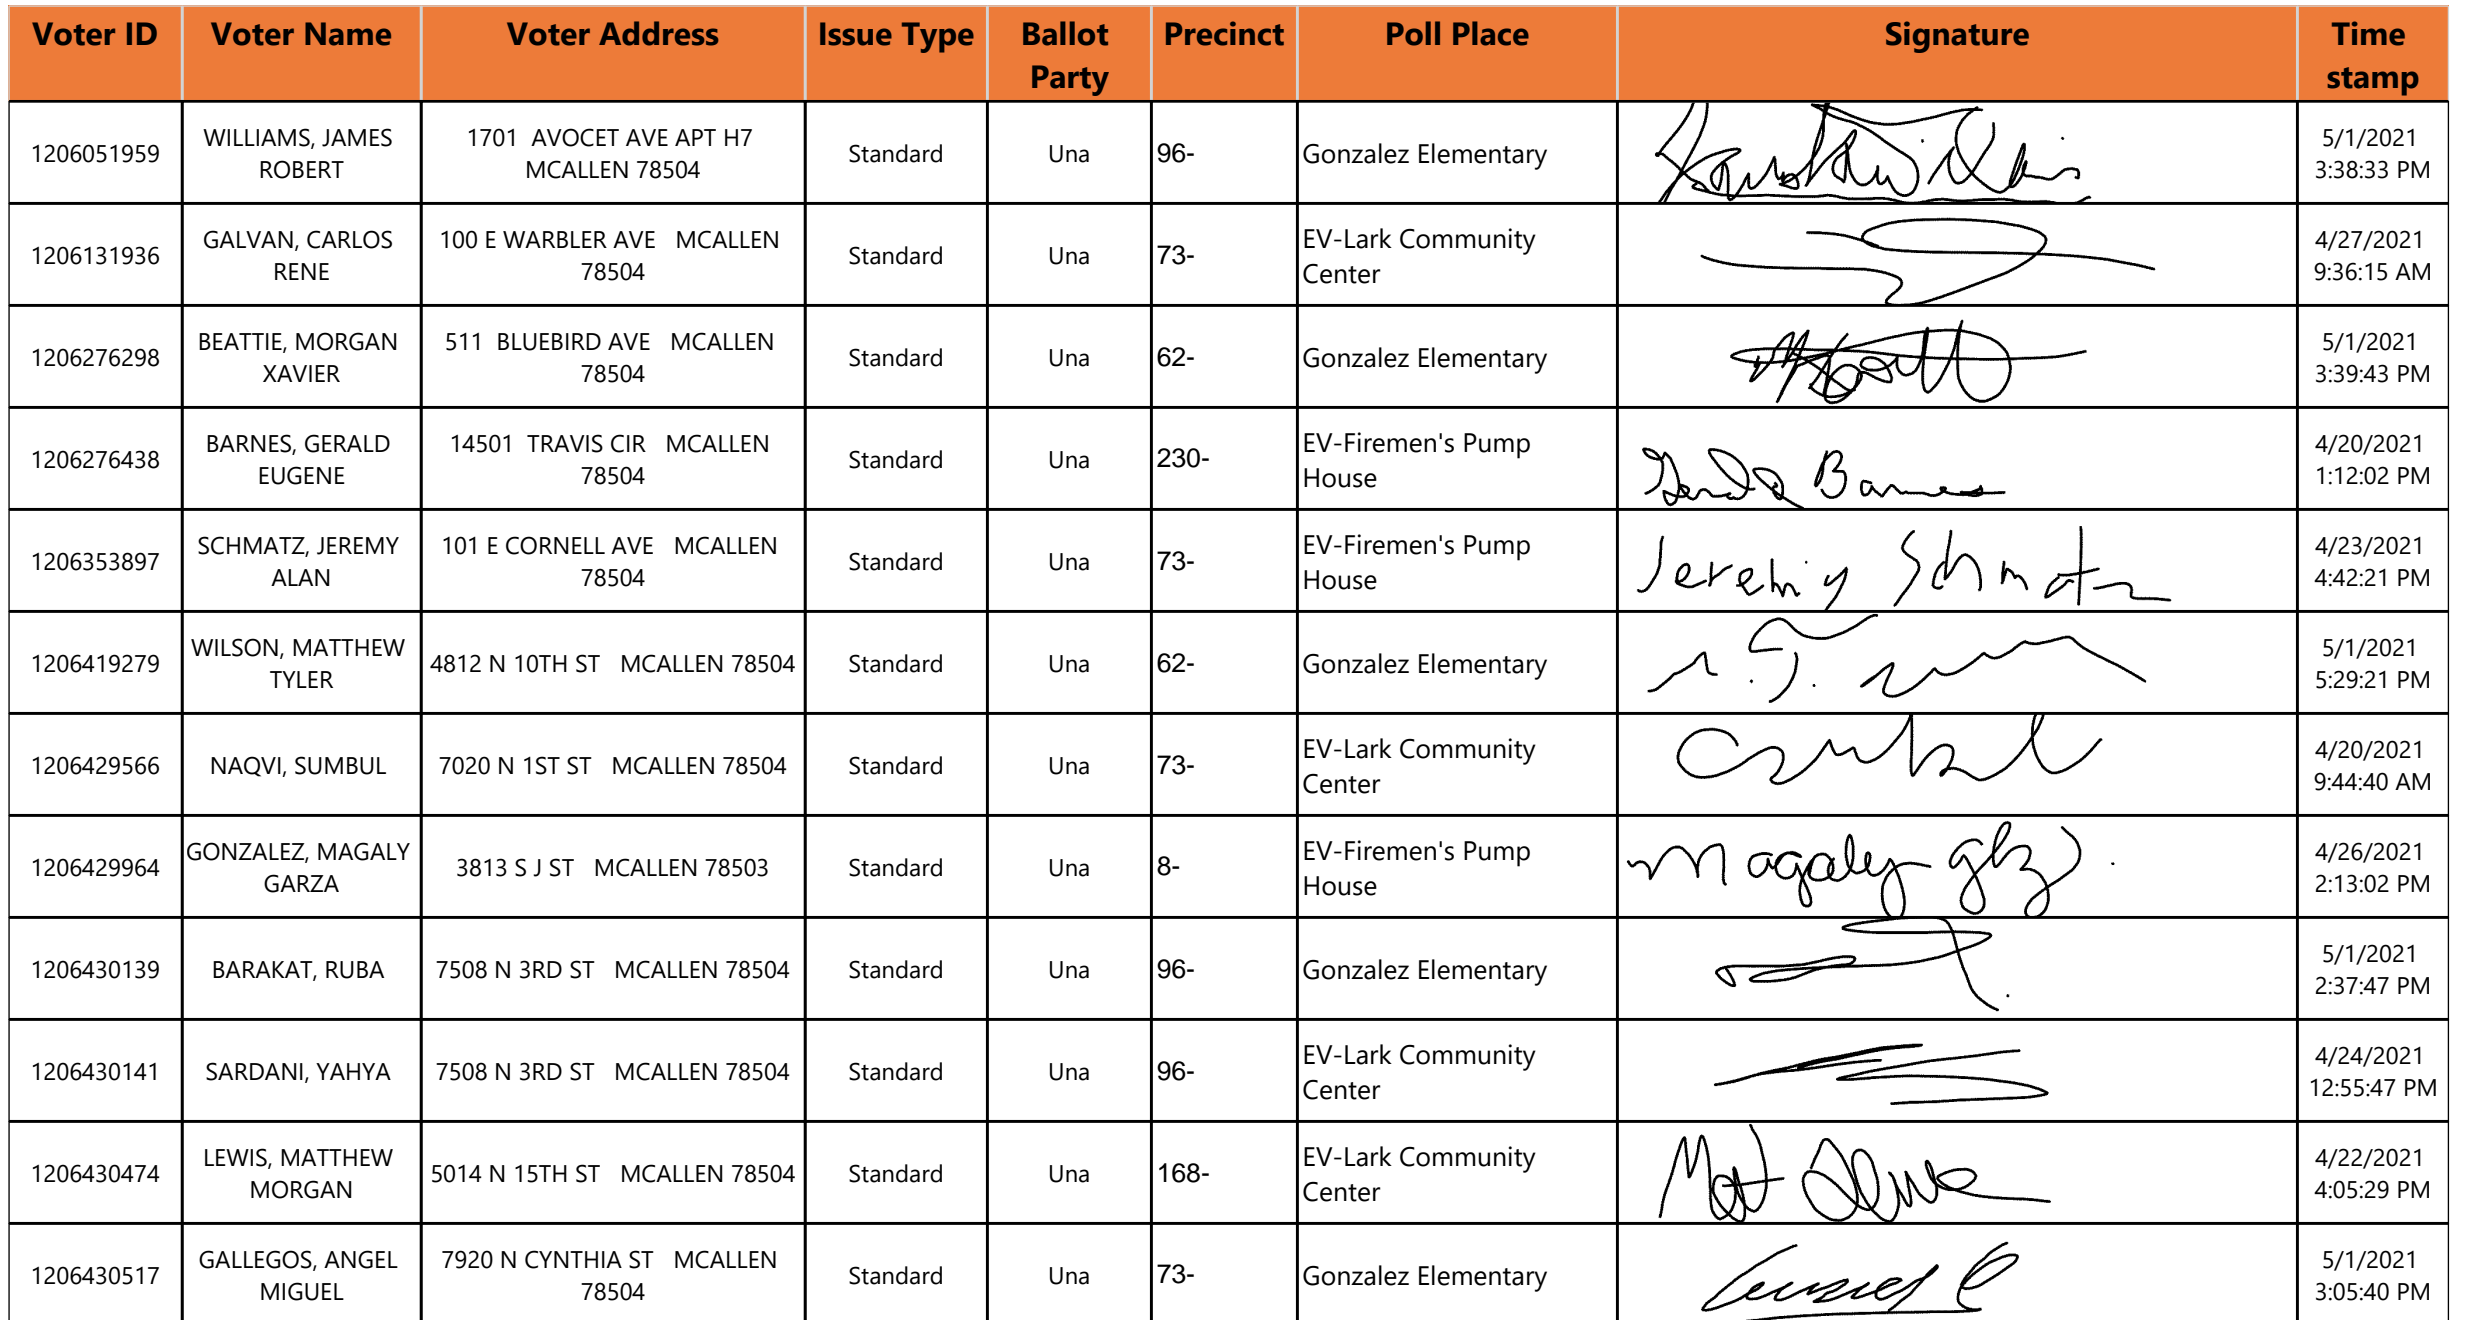 Voter ID Voter Name Voter Address Issue Type Ballot Party Precinct Poll Place Signature Time stamp
1206051959 WILLIAMS, JAMES ROBERT 1701 AVOCET AVE APT H7 MCALLEN 78504 Standard Una 96- Gonzalez Elementary 5/1/2021 3:38:33 PM
1206131936 GALVAN, CARLOS RENE 100 E WARBLER AVE MCALLEN 78504 Standard Una 73- EV-Lark Community Center 4/27/2021 9:36:15 AM
1206276298 BEATTIE, MORGAN XAVIER 511 BLUEBIRD AVE MCALLEN 78504 Standard Una 62- Gonzalez Elementary 5/1/2021 3:39:43 PM
1206276438 BARNES, GERALD EUGENE 14501 TRAVIS CIR MCALLEN 78504 Standard Una 230- EV-Firemen's Pump House Barnes 4/20/2021 1:12:02 PM
1206353897 SCHMATZ, JEREMY ALAN 101 E CORNELL AVE MCALLEN 78504 Standard Una 73- EV-Firemen's Pump House Jeremy Schmatz 4/23/2021 4:42:21 PM
1206419279 WILSON, MATTHEW TYLER 4812 N 10TH ST MCALLEN 78504 Standard Una 62- Gonzalez Elementary 5/1/2021 5:29:21 PM
1206429566 NAQVI, SUMBUL 7020 N 1ST ST MCALLEN 78504 Standard Una 73- EV-Lark Community Center 4/20/2021 9:44:40 AM
1206429964 GONZALEZ, MAGALY GARZA 3813 S J ST MCALLEN 78503 Standard Una 8- EV-Firemen's Pump House Magaly glz 4/26/2021 2:13:02 PM
1206430139 BARAKAT, RUBA 7508 N 3RD ST MCALLEN 78504 Standard Una 96- Gonzalez Elementary 5/1/2021 2:37:47 PM
1206430141 SARDANI, YAHYA 7508 N 3RD ST MCALLEN 78504 Standard Una 96- EV-Lark Community Center 4/24/2021 12:55:47 PM
1206430474 LEWIS, MATTHEW MORGAN 5014 N 15TH ST MCALLEN 78504 Standard Una 168- EV-Lark Community Center Matt 4/22/2021 4:05:29 PM
1206430517 GALLEGOS, ANGEL MIGUEL 7920 N CYNTHIA ST MCALLEN 78504 Standard Una 73- Gonzalez Elementary 5/1/2021 3:05:40 PM